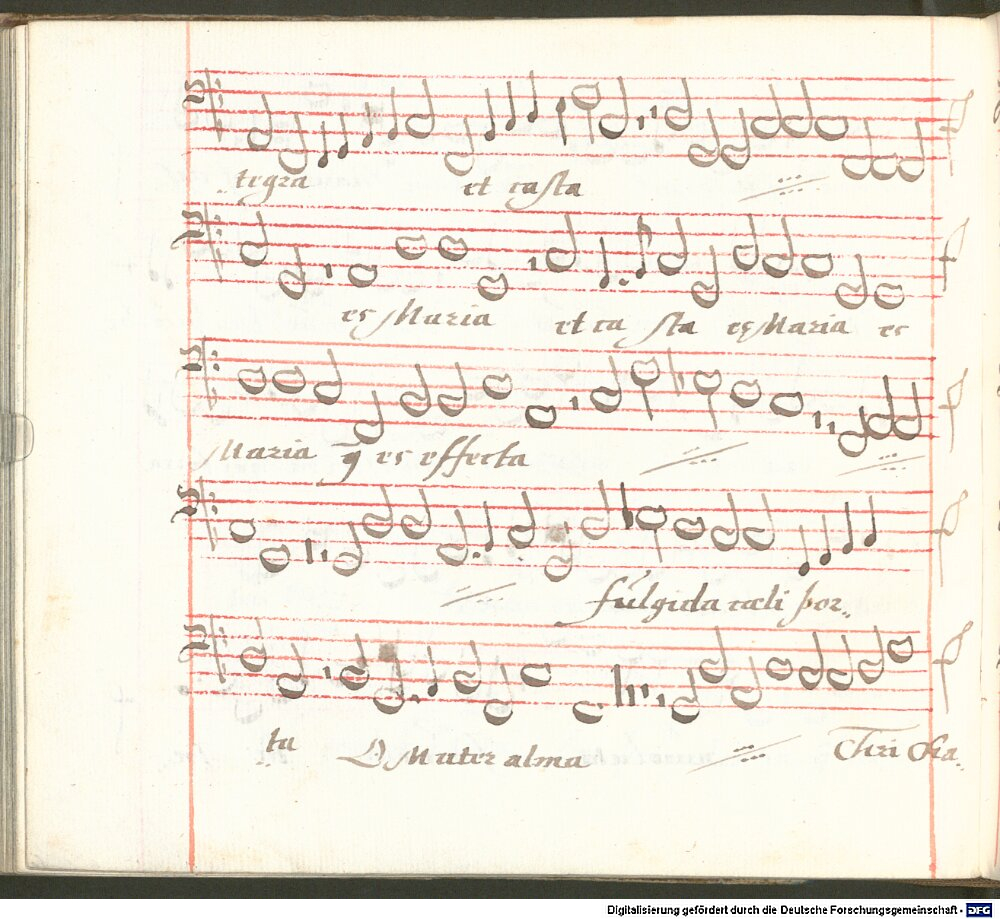 tegra et casta
es Maria et ca sta es Maria es
Maria q̄ es effecta
fulgida cœli por„
ta O Mater alma Tiri Cha„
Digitalisierung gefördert durch die Deutsche Forschungsgemeinschaft - DFG